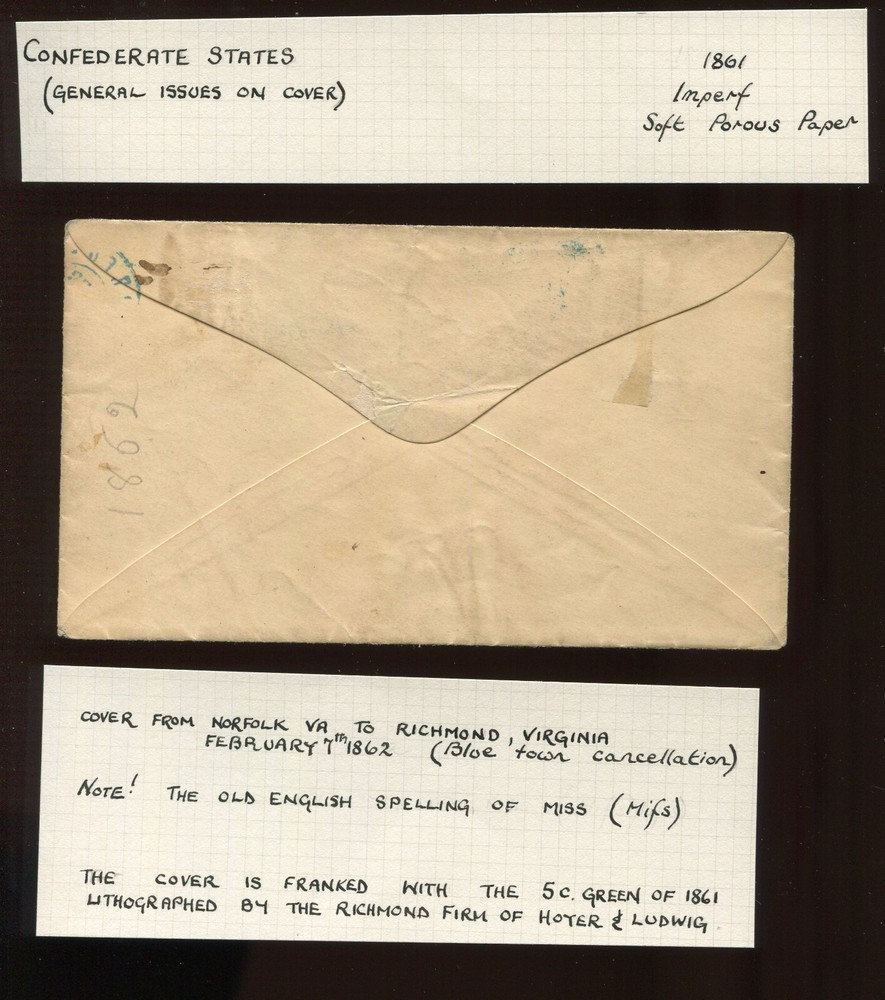 CONFEDERATE STATES
(GENERAL ISSUES ON COVER)
1861
Imperf
Soft Porous Paper
1862
COVER FROM NORFOLK VA TO RICHMOND, VIRGINIA
FEBRUARY 7th 1862 (Blue town cancellation)
NOTE! THE OLD ENGLISH SPELLING OF MISS (Mifs)
THE COVER IS FRANKED WITH THE 5c. GREEN OF 1861
LITHOGRAPHED BY THE RICHMOND FIRM OF HOYER & LUDWIG